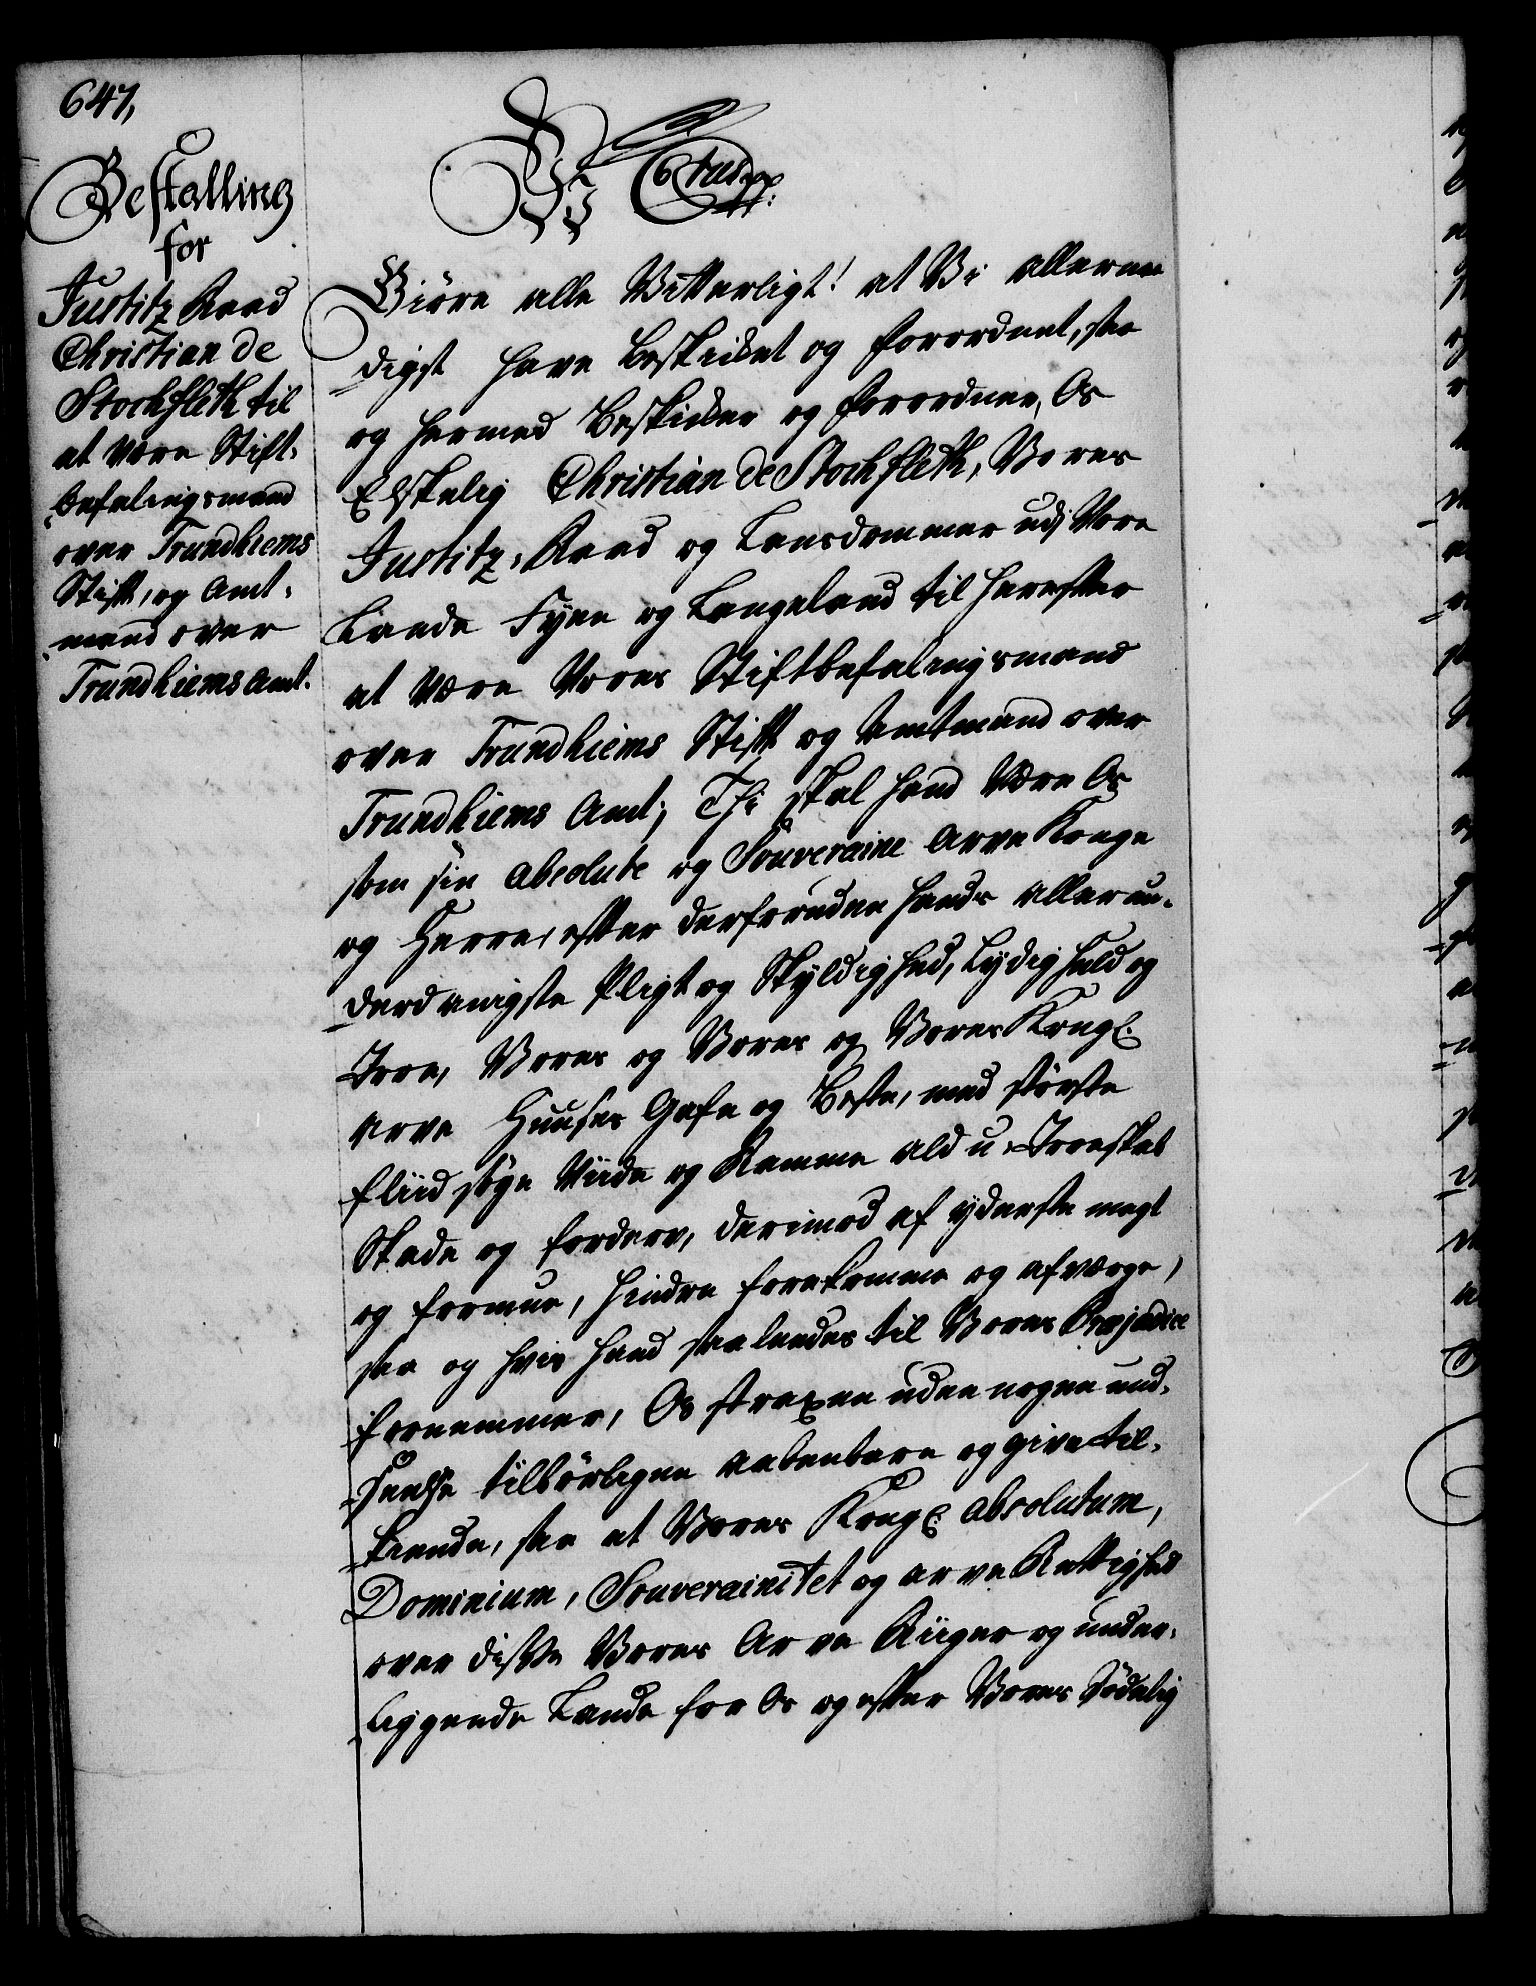 647,
Bestalling
for
Justitz Raad
Christian de
Stockfleth til
at være Stift-
befalingsmand
over Trundhiems
Stift, og Amt-
mand over
Trundhiems Amt.
Vi C 6tus pp:
Giöre alle Vitterligt! at Vi allernaa-
digst have beskicket og forordnet, saa
og hermed beskicker og forordner, Os
Elskelig Christian de Stockfleth, Vores
Justitz-Raad og Lansdommer udj Vore
Lande Fyen og Langeland til herefter
at være Vores Stiftbefalingsmand
over Trundhiems Stift og Amtmand over
Trundhiems Amt; Thi skal hand være Os
som sin absolute og Souveraine Arve Konge
og Herre, efter derforuden hands allerun-
derdanigste Pligt og Skyldighed, Lydig huld og
Troe, Vores og Vores og Vores Kongl:
Arve Huuses Gafn og Beste, med störste
Fliid söge Viide og Ramme ald u-Troeskab
Skade og Forderv, derimod af yderste magt
og formue, hindre forekomme og afværge,
saa og hvis hand saaleedes til Vores Præjudice
fornemmer, Os straxen uden nogen und-
seelse tilbörligen aabenbare og give til-
kiende, saa at Vores Kongl: absolutum,
Dominium, Souverainitet og arve Rettighed
over disse Vores Arve Riiger og under-
liggende Lande for Os og efter Vores Södelig